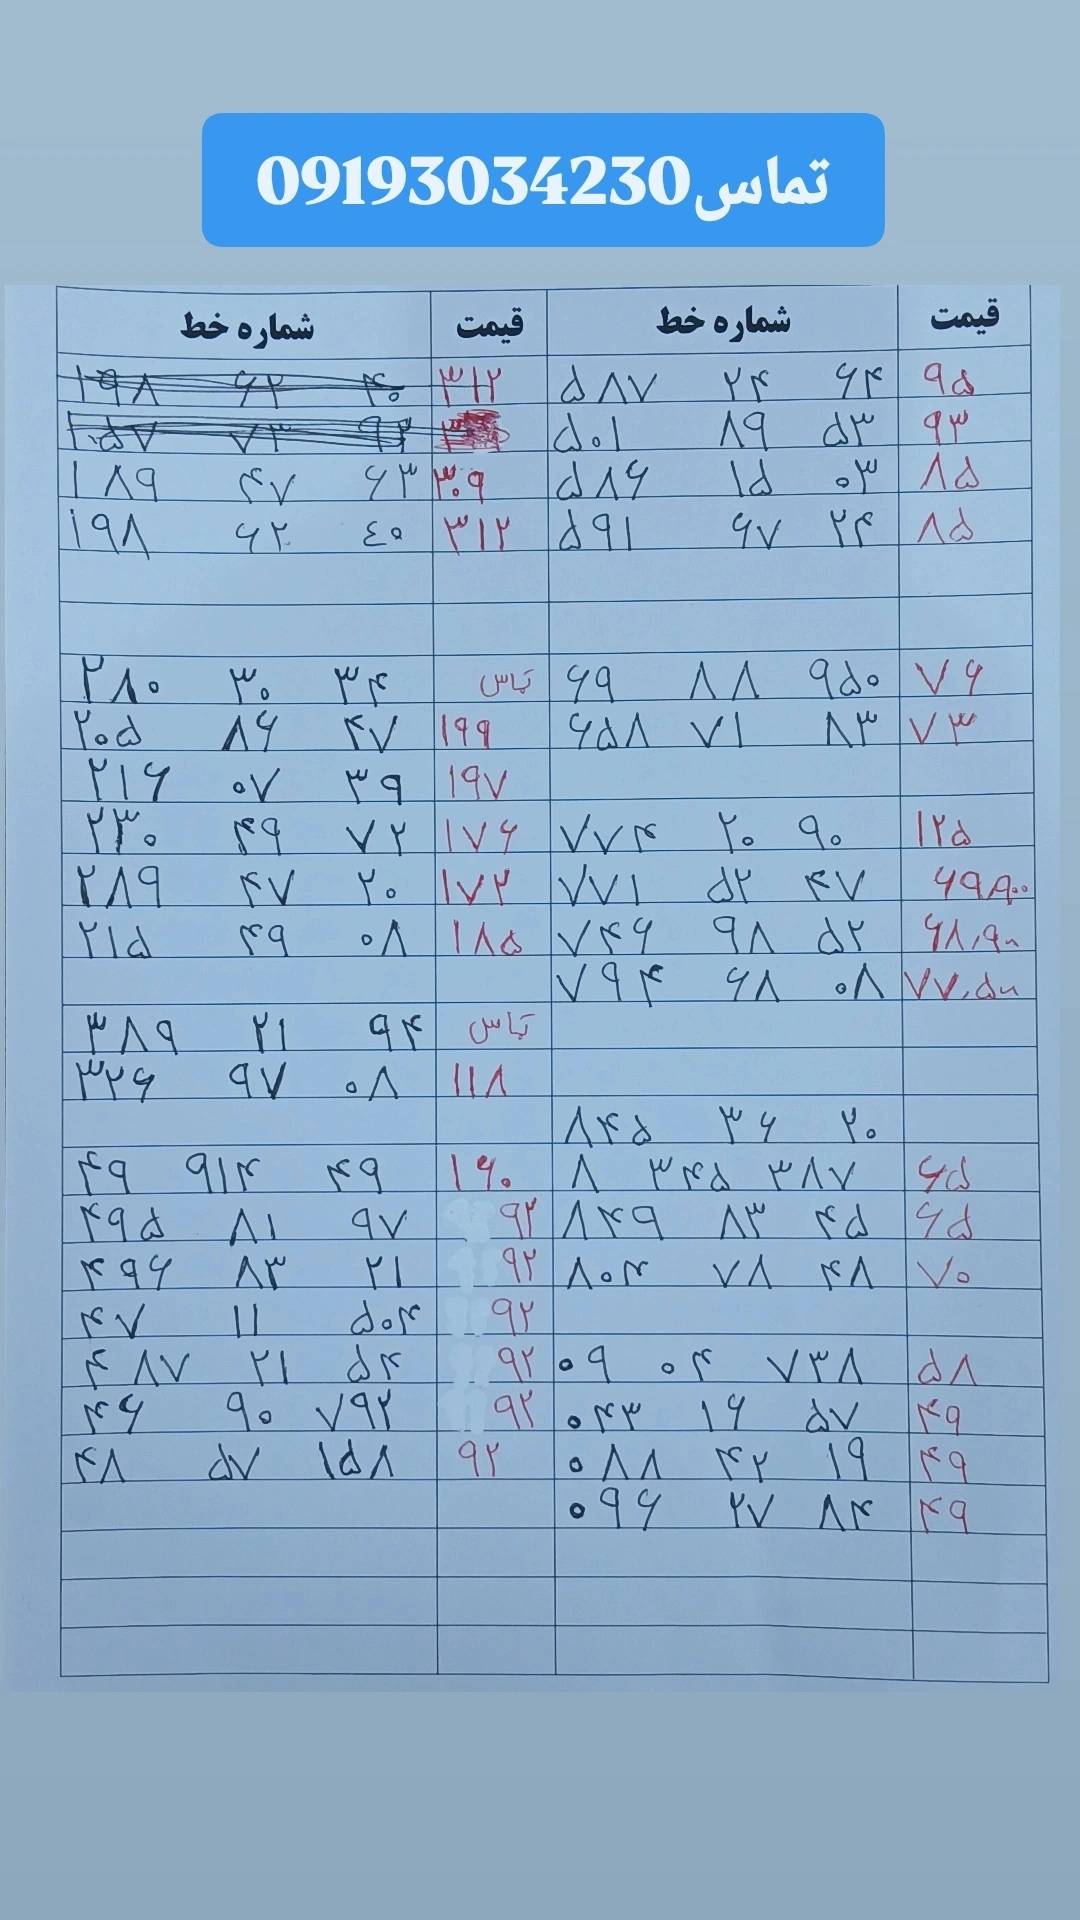 تماس09193034230
شماره خط قیمت شماره خط قیمت
۱۹۸ ۶۲ ۴۰ ۳۱۲ ۵۸۷ ۲۴ ۶۴ ۹۵
۱۰۵۷ ۷۳ ۹۴ ۵۰۱ ۸۹ ۵۳ ۹۳
۱۸۹ ۴۷ ۶۳ ۳۰۹ ۵۸۶ ۱۵ ۰۳ ۸۵
۱۹۸ ۶۲ ٤۰ ۳۱۲ ۵۹۱ ۶۷ ۲۴ ۸۵
۲۸۰ ۳۰ ۳۴ تماس ۶۹ ۸۸ ۹۵۰ ۷۶
۲۰۵ ۸۶ ۴۷ ۱۹۹ ۶۵۸ ۷۱ ۸۳ ۷۳
۲۱۶ ۰۷ ۳۹ ۱۹۷
۲۳۰ ۴۹ ۷۲ ۱۷۶ ۷۷۴ ۲۰ ۹۰ ۱۲۵
۲۸۹ ۴۷ ۲۰ ۱۷۲ ۷۷۱ ۵۲ ۴۷ ۶۹۹۰۰
۲۱۵ ۴۹ ۰۸ ۱۸۵ ۷۴۶ ۹۸ ۵۲ ۶۸،۹۰۰
۷۹۴ ۶۸ ۰۸ ۷۷،۵۰۰
۳۸۹ ۲۱ ۹۴ تماس
۳۲۶ ۹۷ ۰۸ ۱۱۸
۸۴۵ ۳۶ ۲۰
۴۹ ۹۱۴ ۴۹ ۱۶۰ ۸ ۳۴۵ ۳۸۷ ۶۵
۴۹۵ ۸۱ ۹۷ ۹۲ ۸۴۹ ۸۳ ۴۵ ۶۵
۴۹۶ ۸۳ ۲۱ ۹۲ ۸۰۴ ۷۸ ۴۸ ۷۰
۴۷ ۱۱ ۵۰۴ ۹۲
۴۸۷ ۲۱ ۵۴ ۹۲ ۰۹ ۰۴ ۷۳۸ ۵۸
۴۶ ۹۰ ۷۹۲ ۹۲ ۰۴۳ ۱۶ ۵۷ ۴۹
۴۸ ۵۷ ۱۵۸ ۹۲ ۰۸۸ ۴۲ ۱۹ ۴۹
۰۹۶ ۲۷ ۸۴ ۴۹